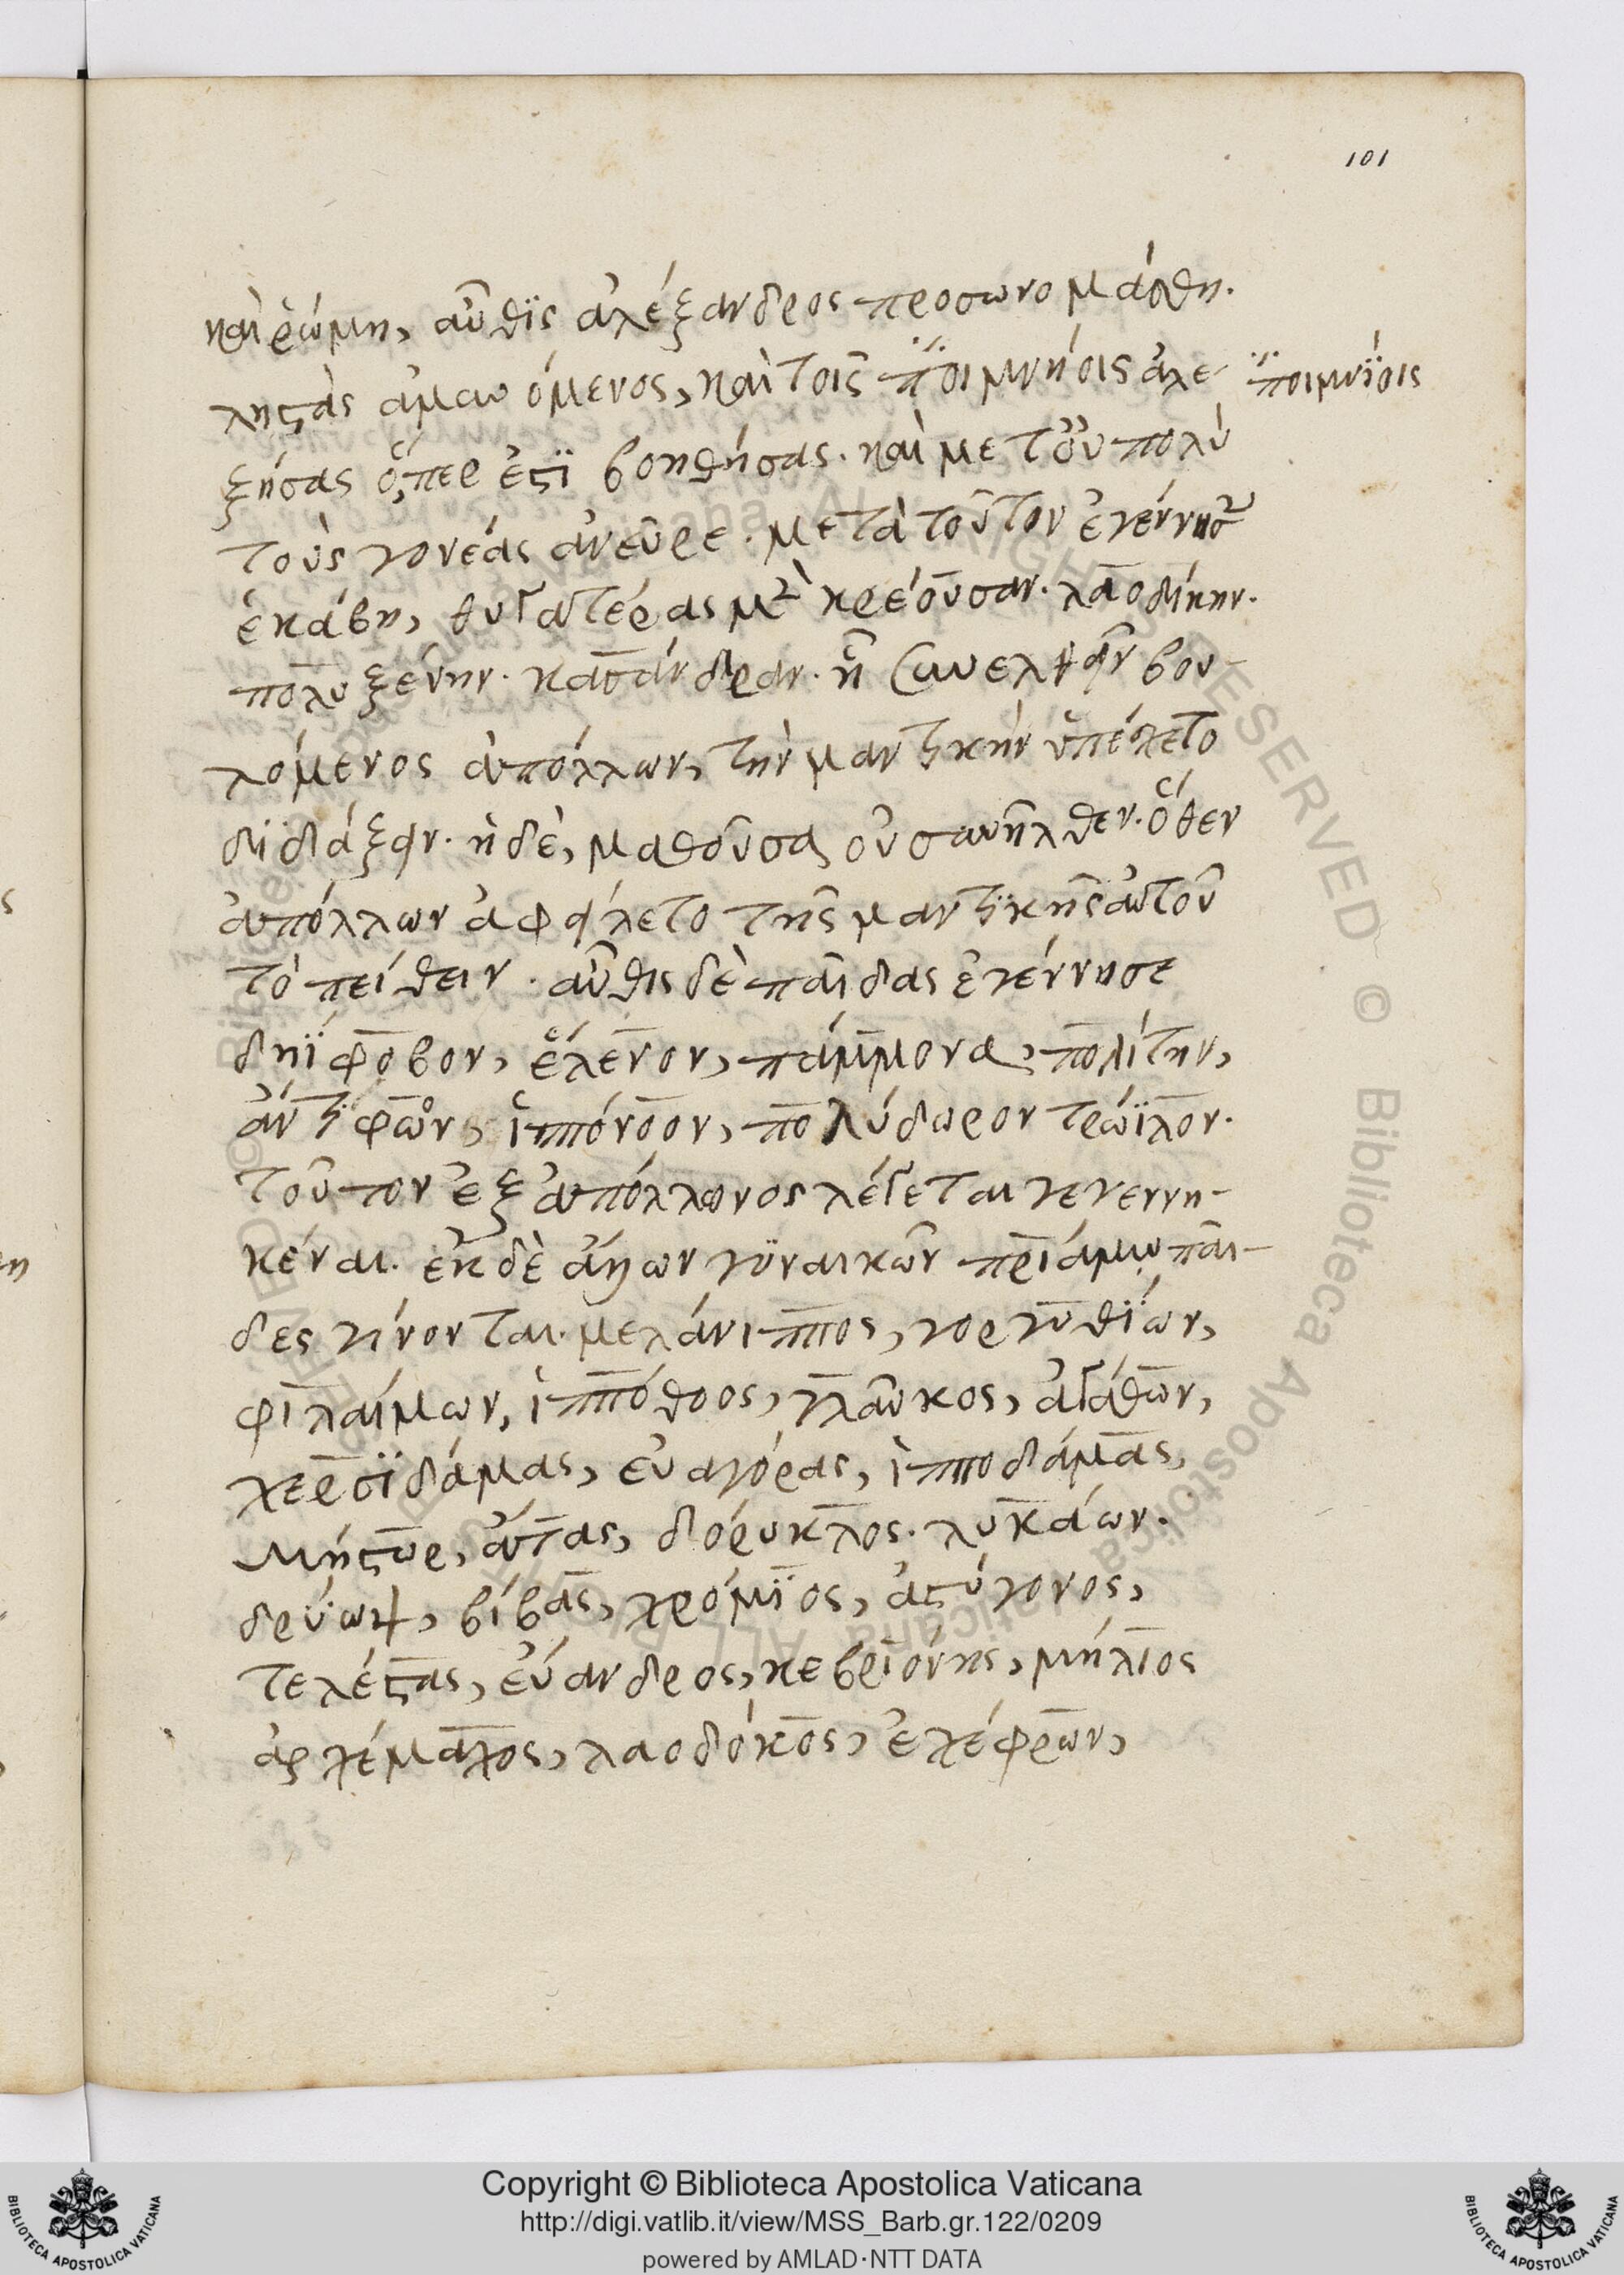 101
καὶ ῥώμη, αὖθϊς ἀλέξανδρος προσωνομάσθη.
ληστὰς ἀμυνόμενος, καὶ τοῖς ποιμνήοις ἀλε- ποιμνΐοις
ξήσας ὅπερ ἐστϊ βοηθήσας. καὶ μετοὐπολύ
τοὺς γονέας ἀνεῦρε. μετὰ τοῦτον ἐγέννησ
ἑκάβη, θυγατέρας μ κρέουσαν. λαοδίκην.
πολυξένην. κασάνδραν. ἧ συνελθεῖν βου-
λόμενος ἀπόλλων, τὴν μαντικὴν ὑπέσχετο
διδάξειν. ἡ δὲ, μαθοῦσα οὐ συνῆλθεν. ὅθεν
ἀπόλλων ἀφείλετο τῆς μαντϊκῆς αὐτοῦ
τὸ πείθειν. αὖθις δὲ παῖδας ἐγέννησε
δηΐφοβον, ἕλενον, πάμμονα, πολίτην,
ἄντϊφων, ἱππόνοον, πολύδωρον τρώϊλον.
τοῦτον ἐξ ἀπόλλωνος λέγεται γεγεννη-
κέναι. ἐκ δὲ ἄλλων γϋναικῶν πρϊάμω παῖ-
δες γίνονται. μελάνιππος, γοργυθΐων,
φιλαίμων, ἱππόθοος, γλαῦκος, ἀγάθων,
χερσϊδάμας, εὐαγόρας, ἱπποδάμας,
μήστωρ, ἄτας, δόρυκλος. λυκάων.
δρύωψ, βίβας, χρόμϊος, ἀστύγονος,
τελέστας, εὔανδρος, κεβρϊόνης, μήλιος
ἀρχέμαχος, λαοδόκος, ἐχέφρων,
Copyright © Biblioteca Apostolica Vaticana
http://digi.vatlib.it/view/MSS_Barb.gr.122/0209
powered by AMLAD·NTT DATA